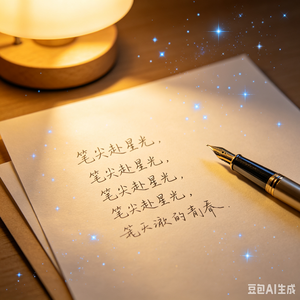 笔尖赴星光，
笔尖赴星光，
笔尖赴星光，
笔尖赴星光，
笔天滶的青春.
豆包AI生成